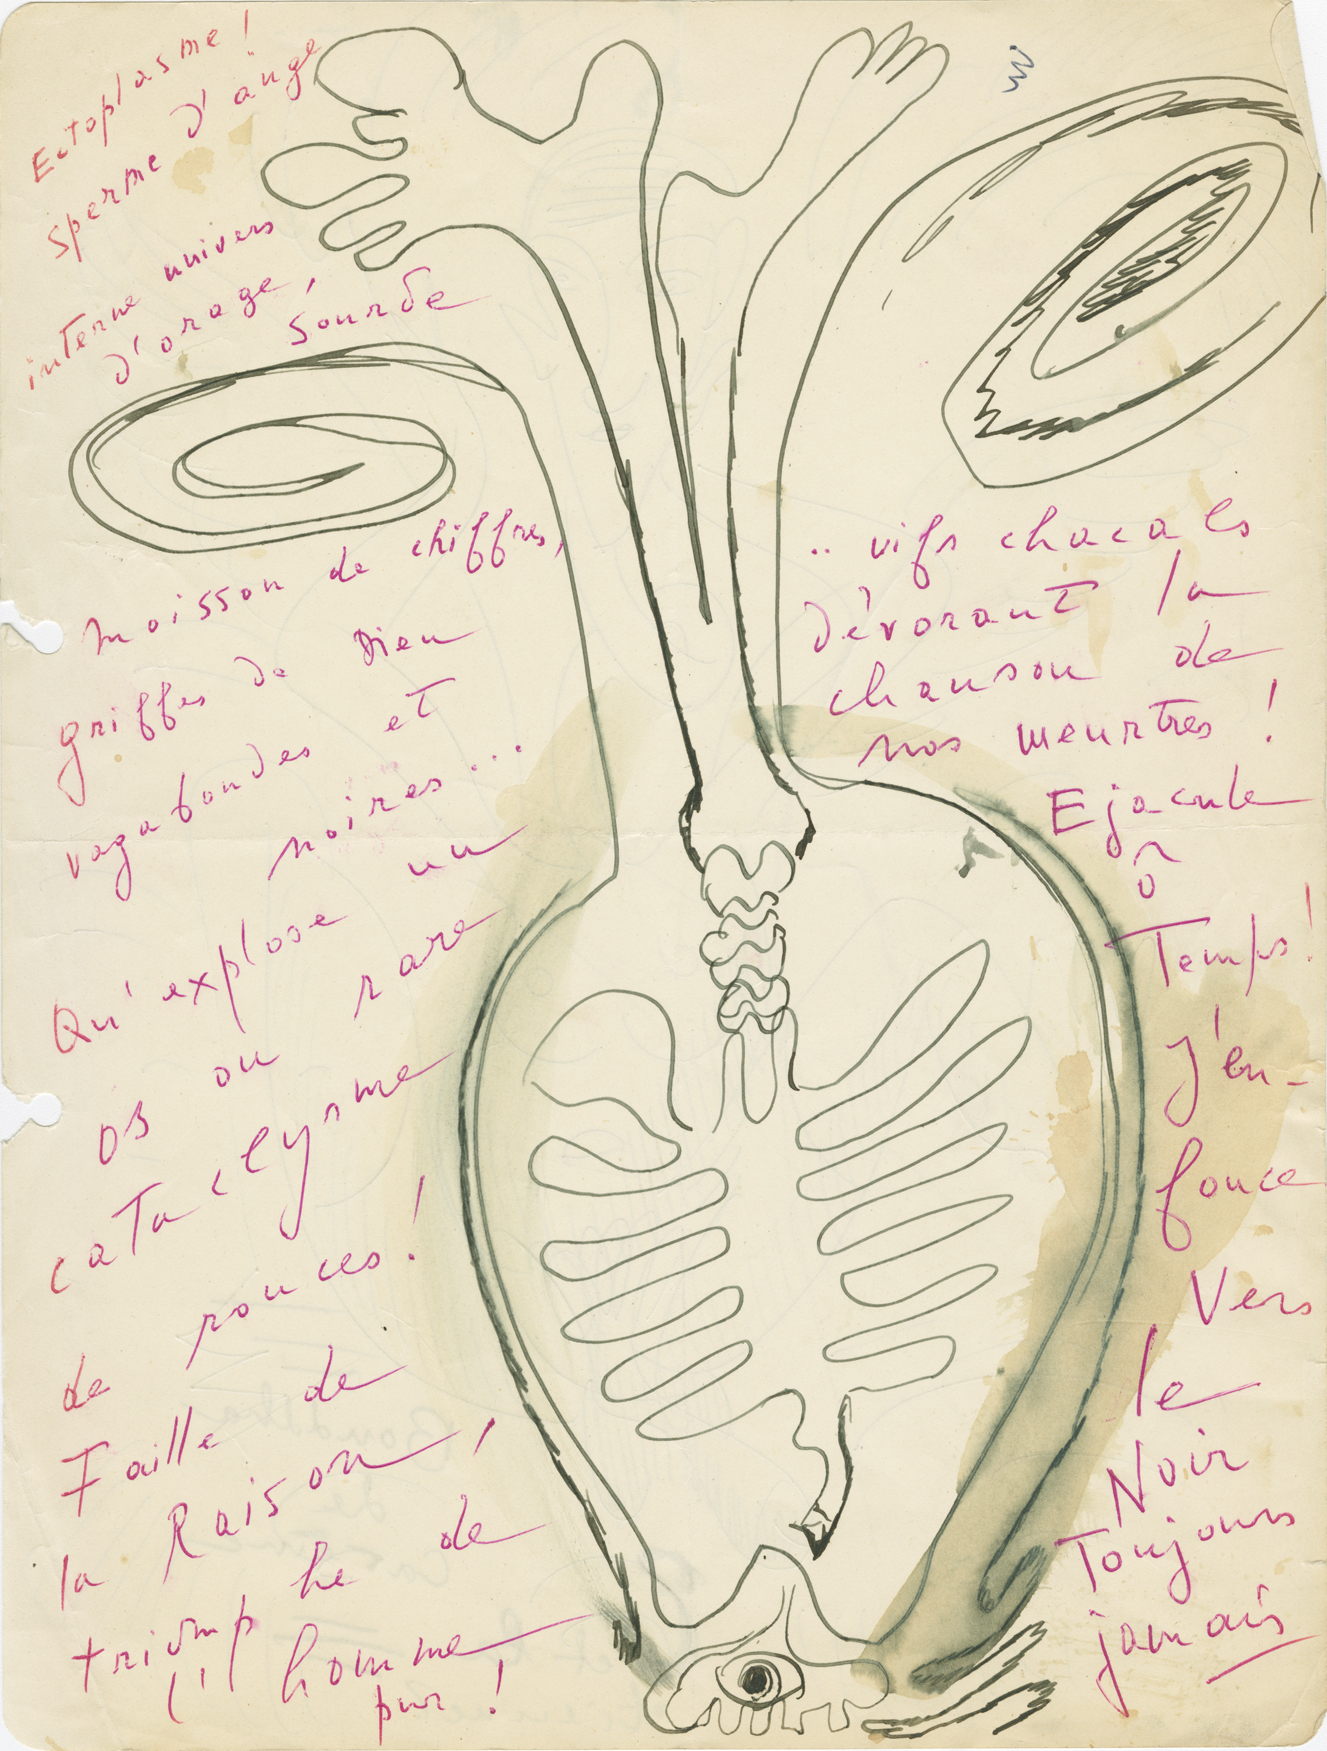 Ectoplasme !
sperme d'ange
interne univers
d'orage,
sourde
moisson de chiffres,
griffes de Dieu
vagabondes et
noires...
Qu'explose un
os ou rare
cataclysme
de pouces !
Faille de
la Raison,
triomphe de
l'homme
pur !
.. vifs chacals
dévorant la
chanson de
nos meurtres !
Ejacule
ô
Temps !
J'en-
fonce
Vers
le
Noir
Toujours
jamais